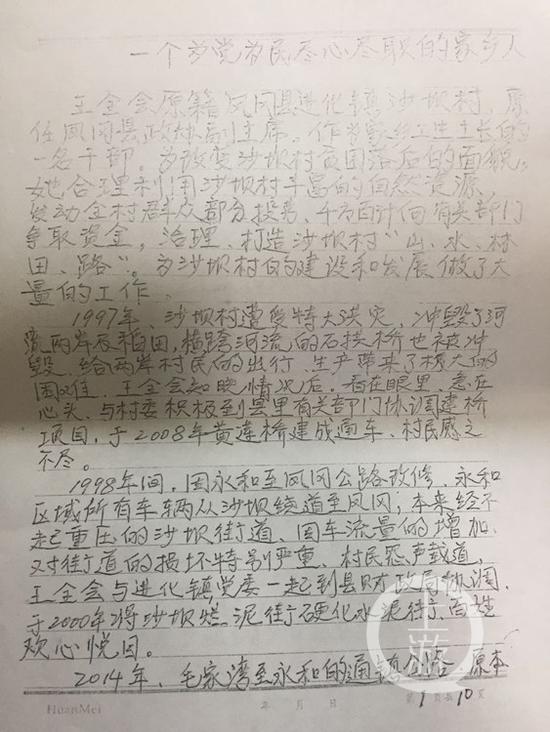 一个为党为民尽心尽职的家乡人
王全会原籍凤冈县进化镇沙坝村，原
任凤冈县政协副主席。作为家乡土生土长的
一名干部。为改变沙坝村贫困落后的面貌。
她合理利用沙坝村丰富的自然资源，
发动全村群众部分投劳、千方百计向有关部门
争取资金，治理、打造沙坝村“山、水、林
田、路”。为沙坝村的建设和发展做了大
量的工作。
1997年、沙坝村遭受特大洪灾，冲毁了河
流两岸农稻田，横跨河流的石拱桥也被冲
毁、给两岸村民人的出行、生产带来了极大的
困难、王全会知晓情况后。看在眼里、急在
心头、与村委积极到县里有关部门协调建桥
项目，于2008年黄连桥建成通车、村民感之
不尽。
1998年间，因永和至凤冈公路改修，永和
区域所有车辆从沙坝绕道至凤冈；本来经不
起重压的沙坝街道、因车流量的增加，
对街道的损坏特别严重、村民怨声载道，
王全会与进化镇党委一起到县财政局协调，
于2000年将沙坝烂泥街硬化水泥街，百姓
欢心悦目。
2014年、毛家湾至永和的通镇公路、原本
HuanMei 年 月 日 第1页共10页
上游